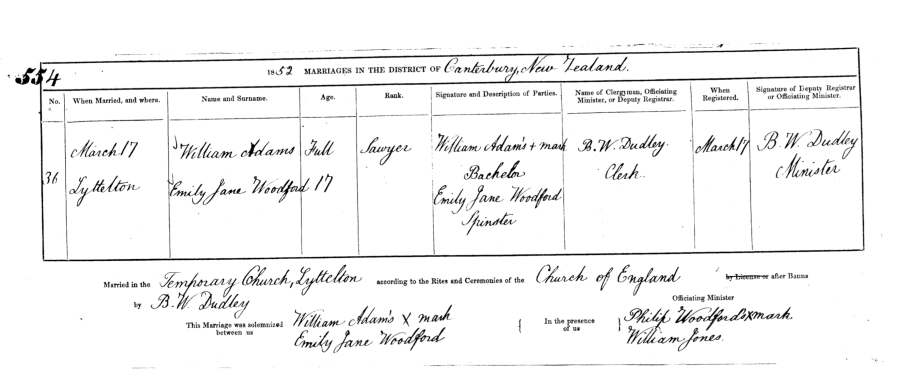 554
1852 MARRIAGES IN THE DISTRICT OF Canterbury, New Zealand.
No. When Married, and where. Name and Surname. Age. Rank. Signature and Description of Parties. Name of Clergyman, Officiating Minister, or Deputy Registrar. When Registered. Signature of Deputy Registrar or Officiating Minister.
March 17 William Adams Full Sawyer William Adam's + mark B. W. Dudley March 17 B. W. Dudley
Bachelor Clerk. Minister
36 Lyttelton Emily Jane Woodford 17 Emily Jane Woodford
Spinster
Married in the Temporary Church, Lyttelton according to the Rites and Ceremonies of the Church of England by License or after Banns
by B. W. Dudley Officiating Minister
This Marriage was solemnized between us William Adam's X mark In the presence of us Philip Woodford's X mark
Emily Jane Woodford William Jones.